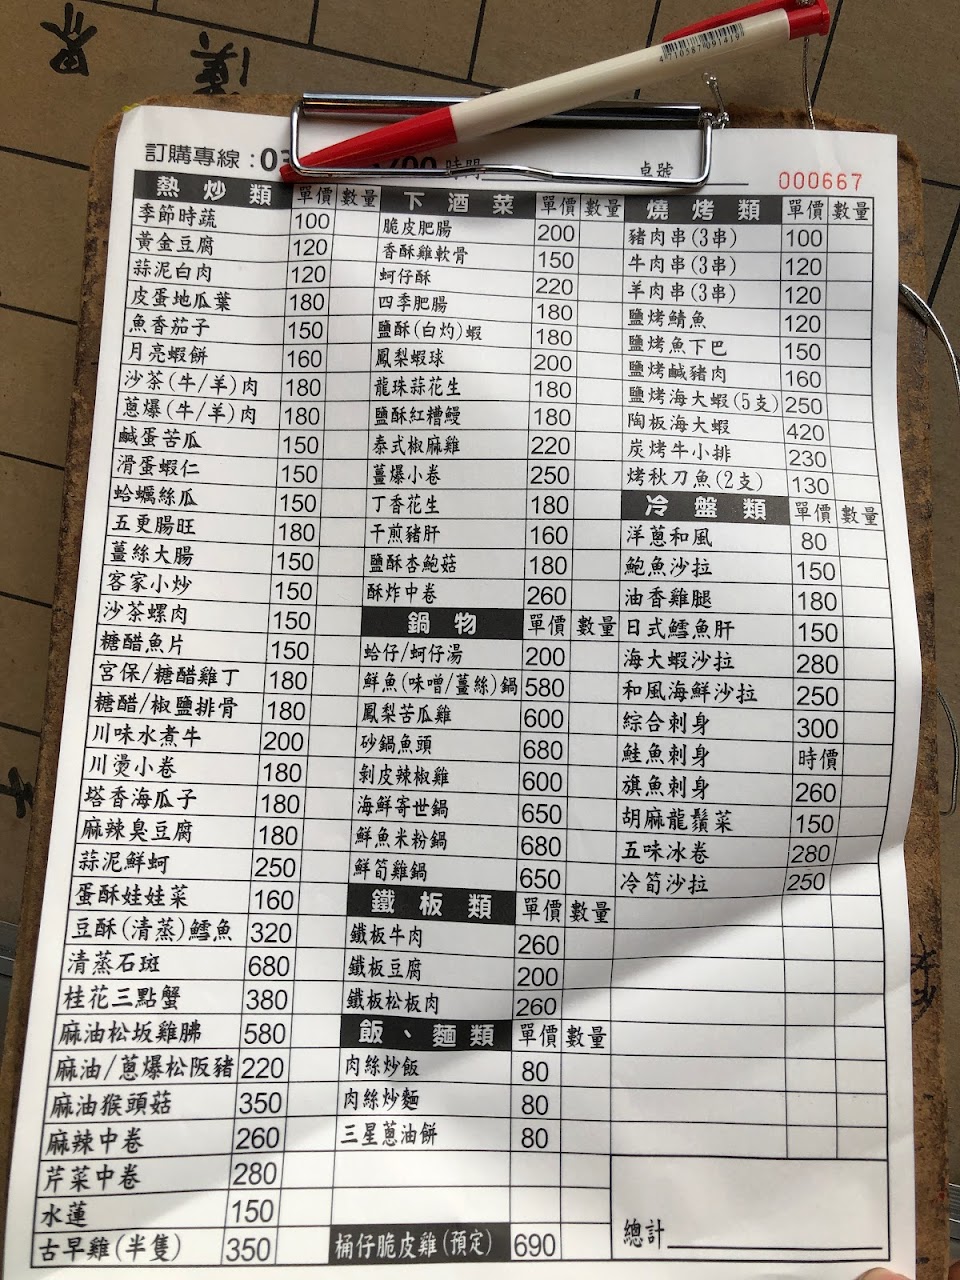 4710587091419
訂購專線:03
時間
桌號
000667
熱炒類 單價 數量
季節時蔬 100
黃金豆腐 120
蒜泥白肉 120
皮蛋地瓜葉 180
魚香茄子 150
月亮蝦餅 160
沙茶(牛/羊)肉 180
蔥爆(牛/羊)肉 180
鹹蛋苦瓜 150
滑蛋蝦仁 150
蛤蠣絲瓜 150
五更腸旺 180
薑絲大腸 150
客家小炒 150
沙茶螺肉 150
糖醋魚片 150
宮保/糖醋雞丁 180
糖醋/椒鹽排骨 180
川味水煮牛 200
川燙小卷 180
塔香海瓜子 180
麻辣臭豆腐 180
蒜泥鮮蚵 250
蛋酥娃娃菜 160
豆酥(清蒸)鱈魚 320
清蒸石斑 680
桂花三點蟹 380
麻油松坂雞胇 580
麻油/蔥爆松阪豬 220
麻油猴頭菇 350
麻辣中卷 260
芹菜中卷 280
水蓮 150
古早雞(半隻) 350
下酒菜 單價 數量
脆皮肥腸 200
香酥雞軟骨 150
蚵仔酥 220
四季肥腸 180
鹽酥(白灼)蝦 180
鳳梨蝦球 200
龍珠蒜花生 180
鹽酥紅糟鰻 180
泰式椒麻雞 220
薑爆小卷 250
丁香花生 180
干煎豬肝 160
鹽酥杏鮑菇 180
酥炸中卷 260
鍋物 單價 數量
蛤仔/蚵仔湯 200
鮮魚(味噌/薑絲)鍋 580
鳳梨苦瓜雞 600
砂鍋魚頭 680
剝皮辣椒雞 600
海鮮寄世鍋 650
鮮魚米粉鍋 680
鮮筍雞鍋 650
鐵板類 單價 數量
鐵板牛肉 260
鐵板豆腐 200
鐵板松板肉 260
飯、麵類 單價 數量
肉絲炒飯 80
肉絲炒麵 80
三星蔥油餅 80
桶仔脆皮雞(預定) 690
燒烤類 單價 數量
豬肉串(3串) 100
牛肉串(3串) 120
羊肉串(3串) 120
鹽烤鯖魚 120
鹽烤魚下巴 150
鹽烤鹹豬肉 160
鹽烤海大蝦(5支) 250
陶板海大蝦 420
炭烤牛小排 230
烤秋刀魚(2支) 130
冷盤類 單價 數量
洋蔥和風 80
鮑魚沙拉 150
油香雞腿 180
日式鱈魚肝 150
海大蝦沙拉 280
和風海鮮沙拉 250
綜合刺身 300
鮭魚刺身 時價
旗魚刺身 260
胡麻龍鬚菜 150
五味冰卷 280
冷筍沙拉 250
總計